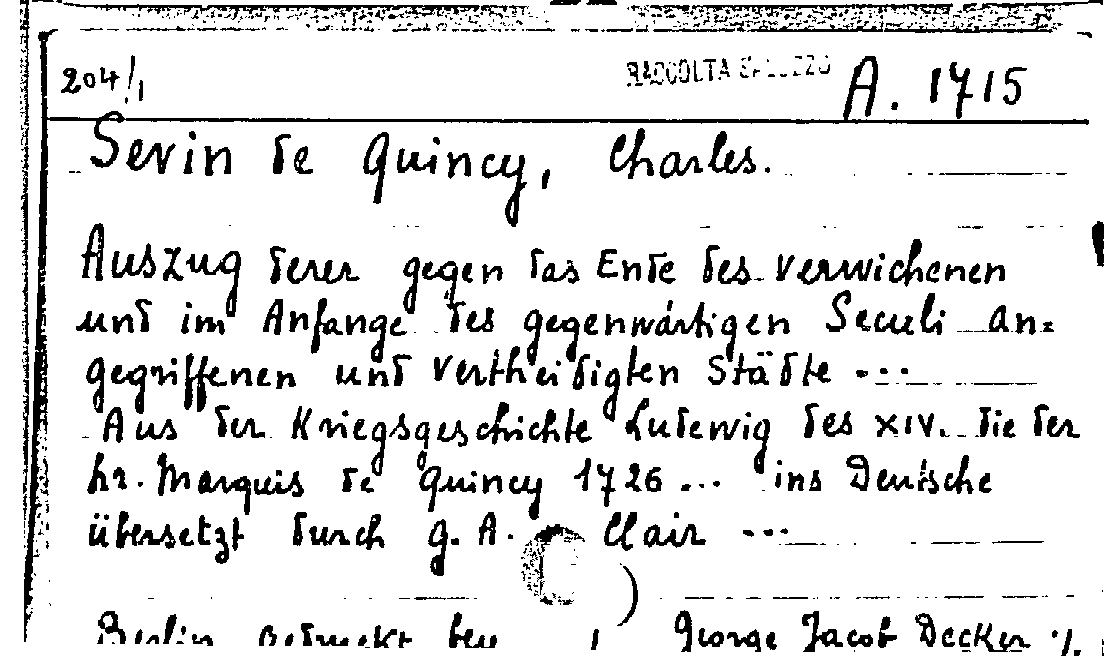 204/1 RACCOLTA SALUZZO A. 1715
Sevin de Quincy, Charles.
Auszug derer gegen das Ende des verwichenen
und im Anfange des gegenwärtigen Seculi an=
gegriffenen und vertheidigten Städte ...
Aus der Kriegsgeschichte Ludewig des XIV. die der
hr. Marquis de Quincy 1726 ... ins Deutsche
übersetzt durch G. A. Clair ...
Berlin gedruckt bey George Jacob Decker